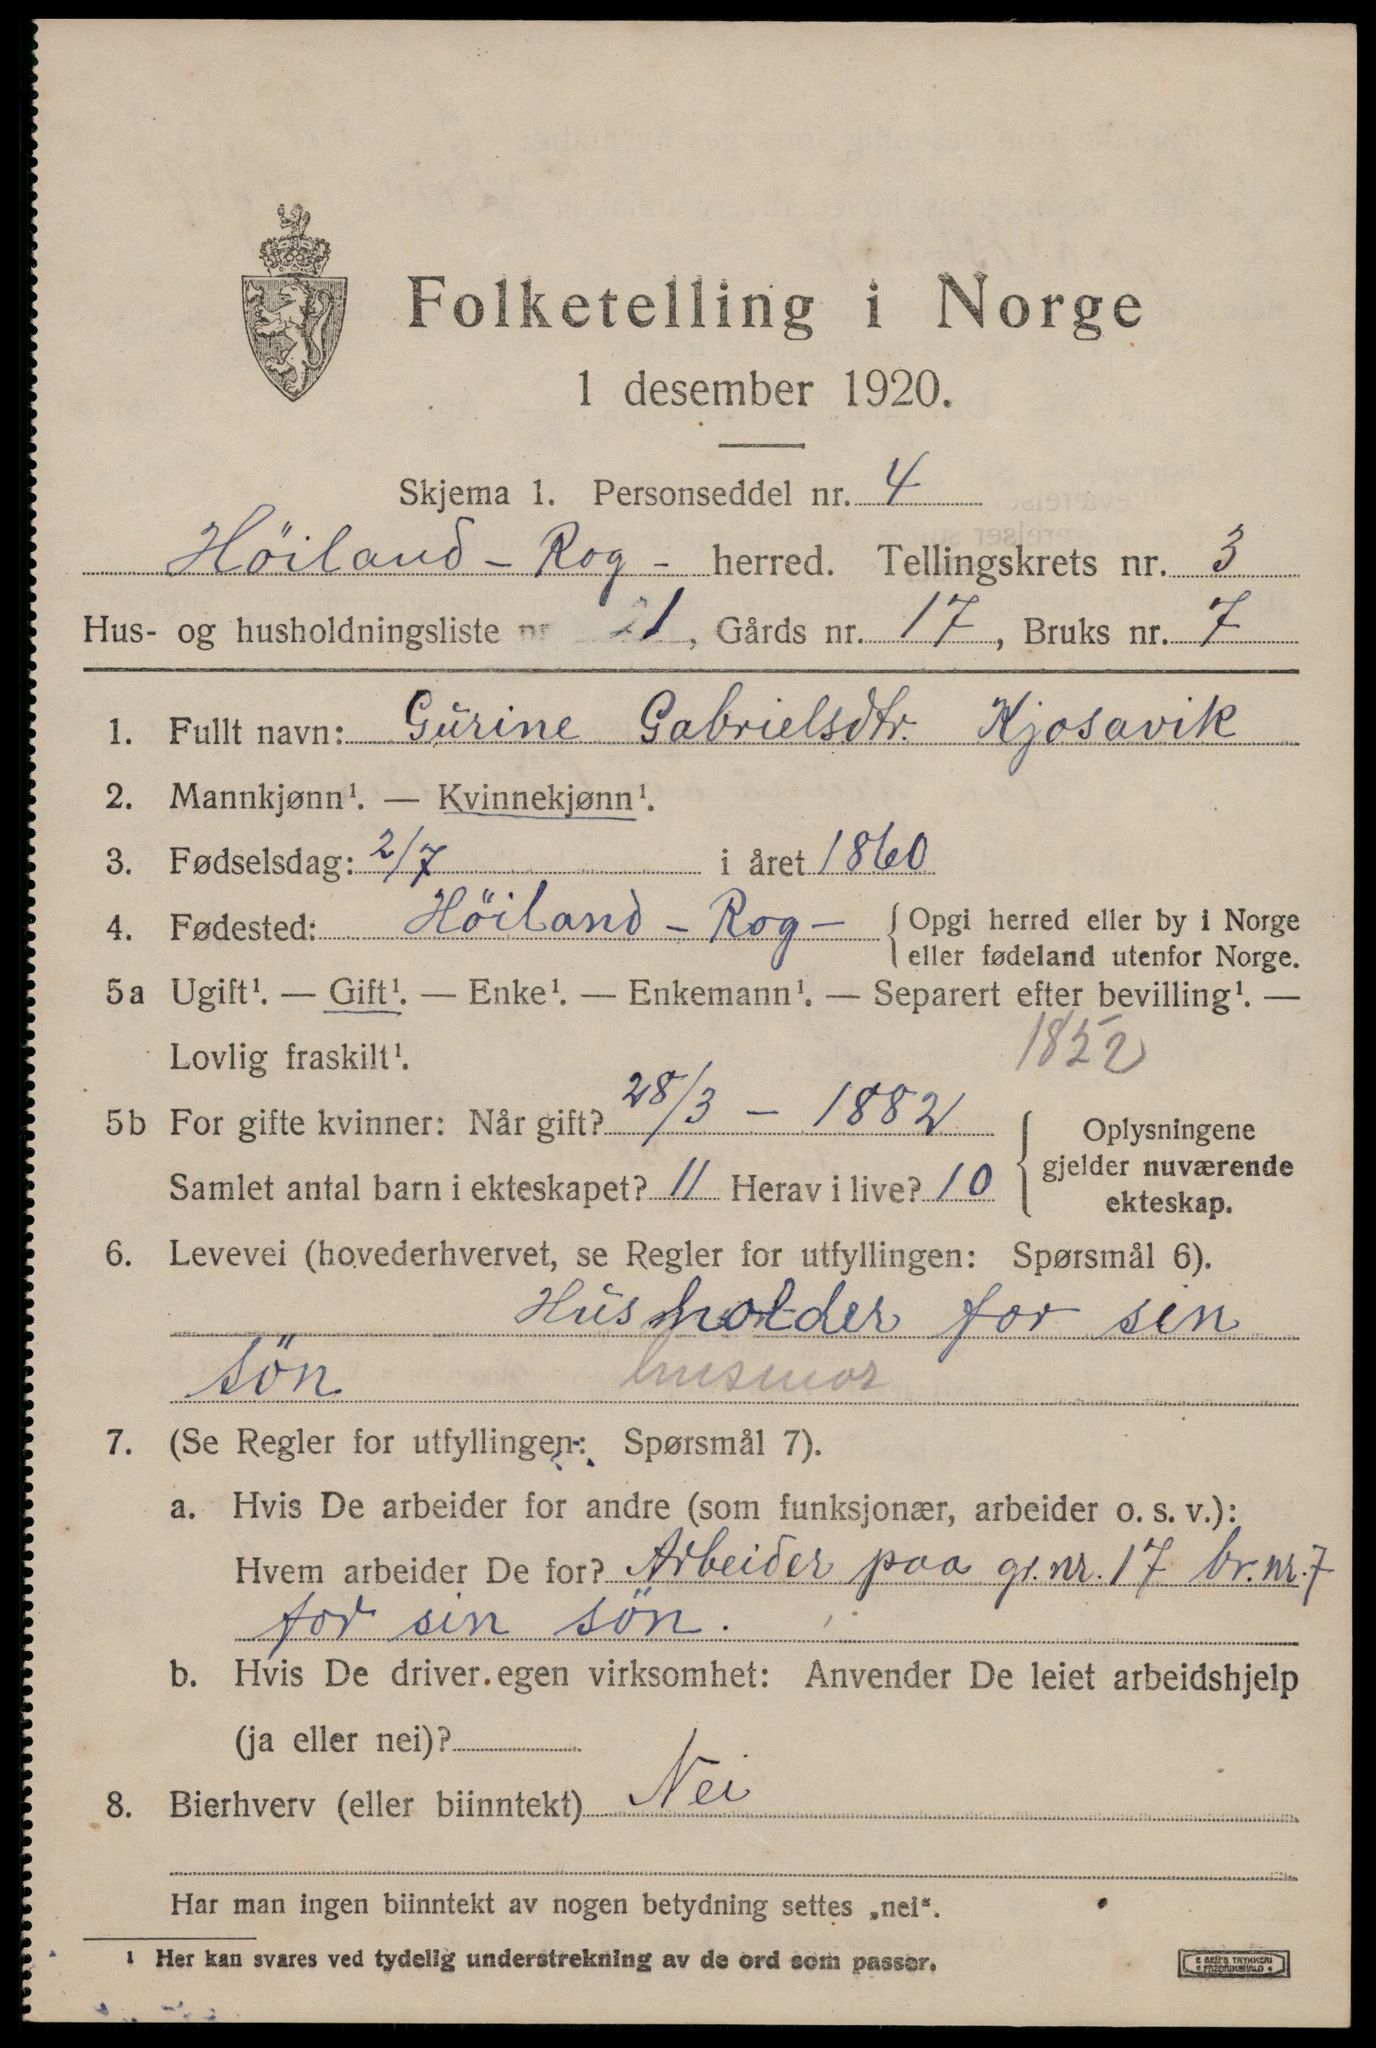 Folketelling i Norge
1 desember 1920.
Skjema 1. Personseddel nr. 4
Höiland - Rog - herred. Tellingskrets nr. 3
Hus- og husholdningsliste nr. 21, Gårds nr. 17, Bruks nr. 7
1. Fullt navn: Gurine Gabrielsdtr. Kjosavik
2. Mannkjønn¹. — Kvinnekjønn¹.
3. Fødselsdag: 2/7 i året 1860
4. Fødested: Höiland - Rog - { Opgi herred eller by i Norge
eller fødeland utenfor Norge.
5a Ugift¹. — Gift¹. — Enke¹. — Enkemann¹. — Separert efter bevilling¹. —
Lovlig fraskilt¹. 1852
5b For gifte kvinner: Når gift? 28/3 - 1882
Samlet antal barn i ekteskapet? 11 Herav i live? 10
Oplysningene
gjelder nuværende
ekteskap.
6. Levevei (hovederhvervet, se Regler for utfyllingen: Spørsmål 6).
Husholder for sin
sön husmor
7. (Se Regler for utfyllingen: Spørsmål 7).
a. Hvis De arbeider for andre (som funksjonær, arbeider o. s. v.):
Hvem arbeider De for? Arbeider paa gr. nr. 17 br. nr. 7
for sin sön.
b. Hvis De driver egen virksomhet: Anvender De leiet arbeidshjelp
(ja eller nei)?
8. Bierhverv (eller biinntekt) Nei
Har man ingen biinntekt av nogen betydning settes „nei“.
¹ Her kan svares ved tydelig understrekning av de ord som passer.
E SEM'S TRYKKERI
FREDRIKSHALD